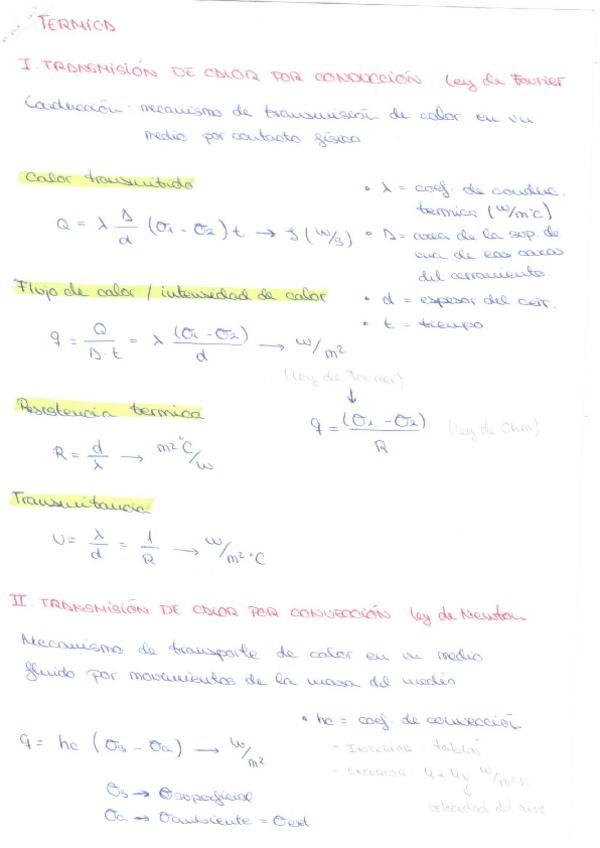 TERMICA
I. TRANSMISIÓN DE CALOR POR CONDUCCIÓN Ley de Fourier
Conducción: mecanismo de transmisión de calor en un
medio por contacto físico
Calor transmitido
Q = λ A/d (θ1 - θ2) t → J (W/s)
• λ = coef. de conduc.
termica (W/m°C)
• A = area de la sup. de
una de las caras
del cerramiento.
• d = espesor del cerr.
• t = tiempo
Flujo de calor / intensidad de calor
q = Q/A·t = λ (θ1 - θ2)/d → W/m²
(Ley de Fourier)
↓
q = (θ1 - θ2)/R (Ley de Ohm)
Resistencia termica
R = d/λ → m²°C/W
Transmitancia
U = λ/d = 1/R → W/m²°C
II. TRANSMISIÓN DE CALOR POR CONVECCIÓN Ley de Newton
Mecanismo de transporte de calor en un medio
fluido por movimientos de la masa del medio
q = hc (θs - θa) → W/m²
• hc = coef. de convección
- INTERIOR: tablas
- EXTERIOR: 4 + 4v W/m²K
↓
velocidad del aire
θs → θsuperficial
θa → θambiente = θext